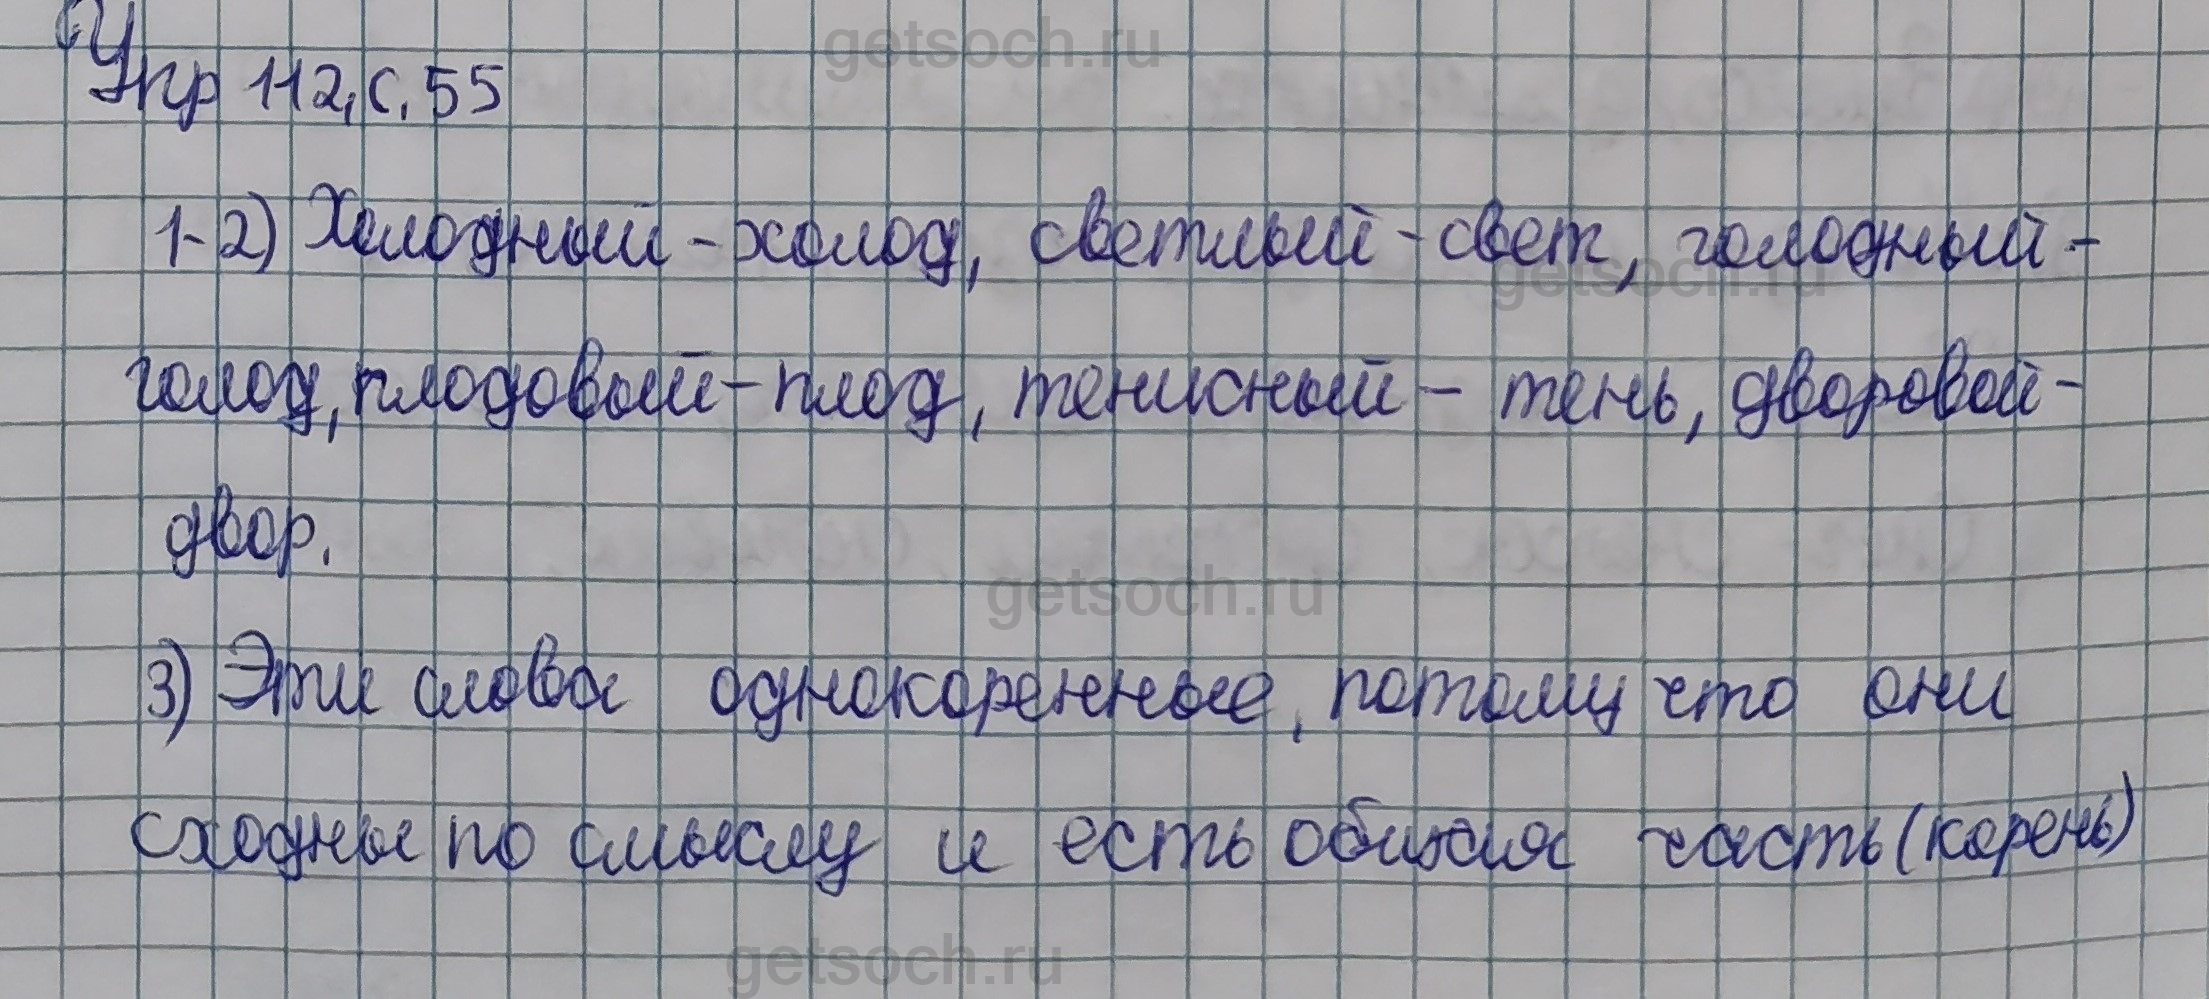 getsoch.ru
Упр 112, с. 55
1-2) Холодный - холод, светлый - свет, голодный -
getsoch.ru
голод, плодовый - плод, тенисный - тень, дворовой -
двор.
getsoch.ru
3) Эти слова однокоренные, потому что они
сходны по смыслу и есть общая часть (корень)
getsoch.ru